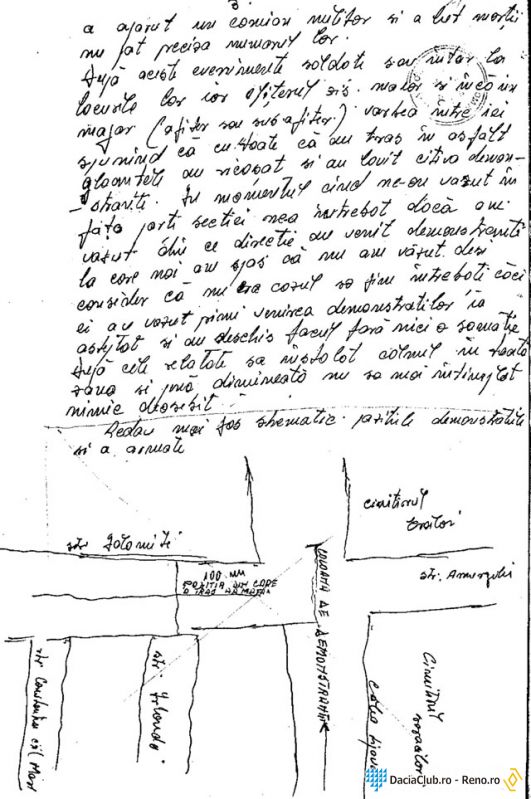 3.
a apărut un camion militar și a luat morții
nu pot preciza numărul lor.
După aceste evenimente soldații s-au întors la
locurile lor iar ofițerul sis. maior și încă un
major (ofițer sau subofițer) vorbea între ei
spunînd că cu toate că au tras în asfalt
gloanțele au ricoșat și au lovit cîțiva demon-
stranți. În momentul cînd ne-au văzut în
fața porții secției ne-a întrebat dacă am
văzut din ce direcție au venit demonstranții
la care noi am spus că nu am văzut deși
consider că nu era cazul să fim întrebați căci
ei au văzut primii venirea demonstraților i-a
așteptat și au deschis focul fără nici o somație
După cele relatate s-a instalat calmul în toată
zona și pînă dimineață nu s-a mai întîmplat
nimic deosebit.
Redau mai jos schematic pozițiile demonstrației
și a armatei
cimitirul
eroilor
str. Ialomiței
100 MM
POZIȚIA DIN CARE
A TRAS ARMATA
COLOANA DE DEMONSTRANȚI
str. Amurgului
str. Constantin cel Mare
str. Irlanda
Calea Lipovei
Cimitirul
săracilor
DaciaClub.ro - Reno.ro